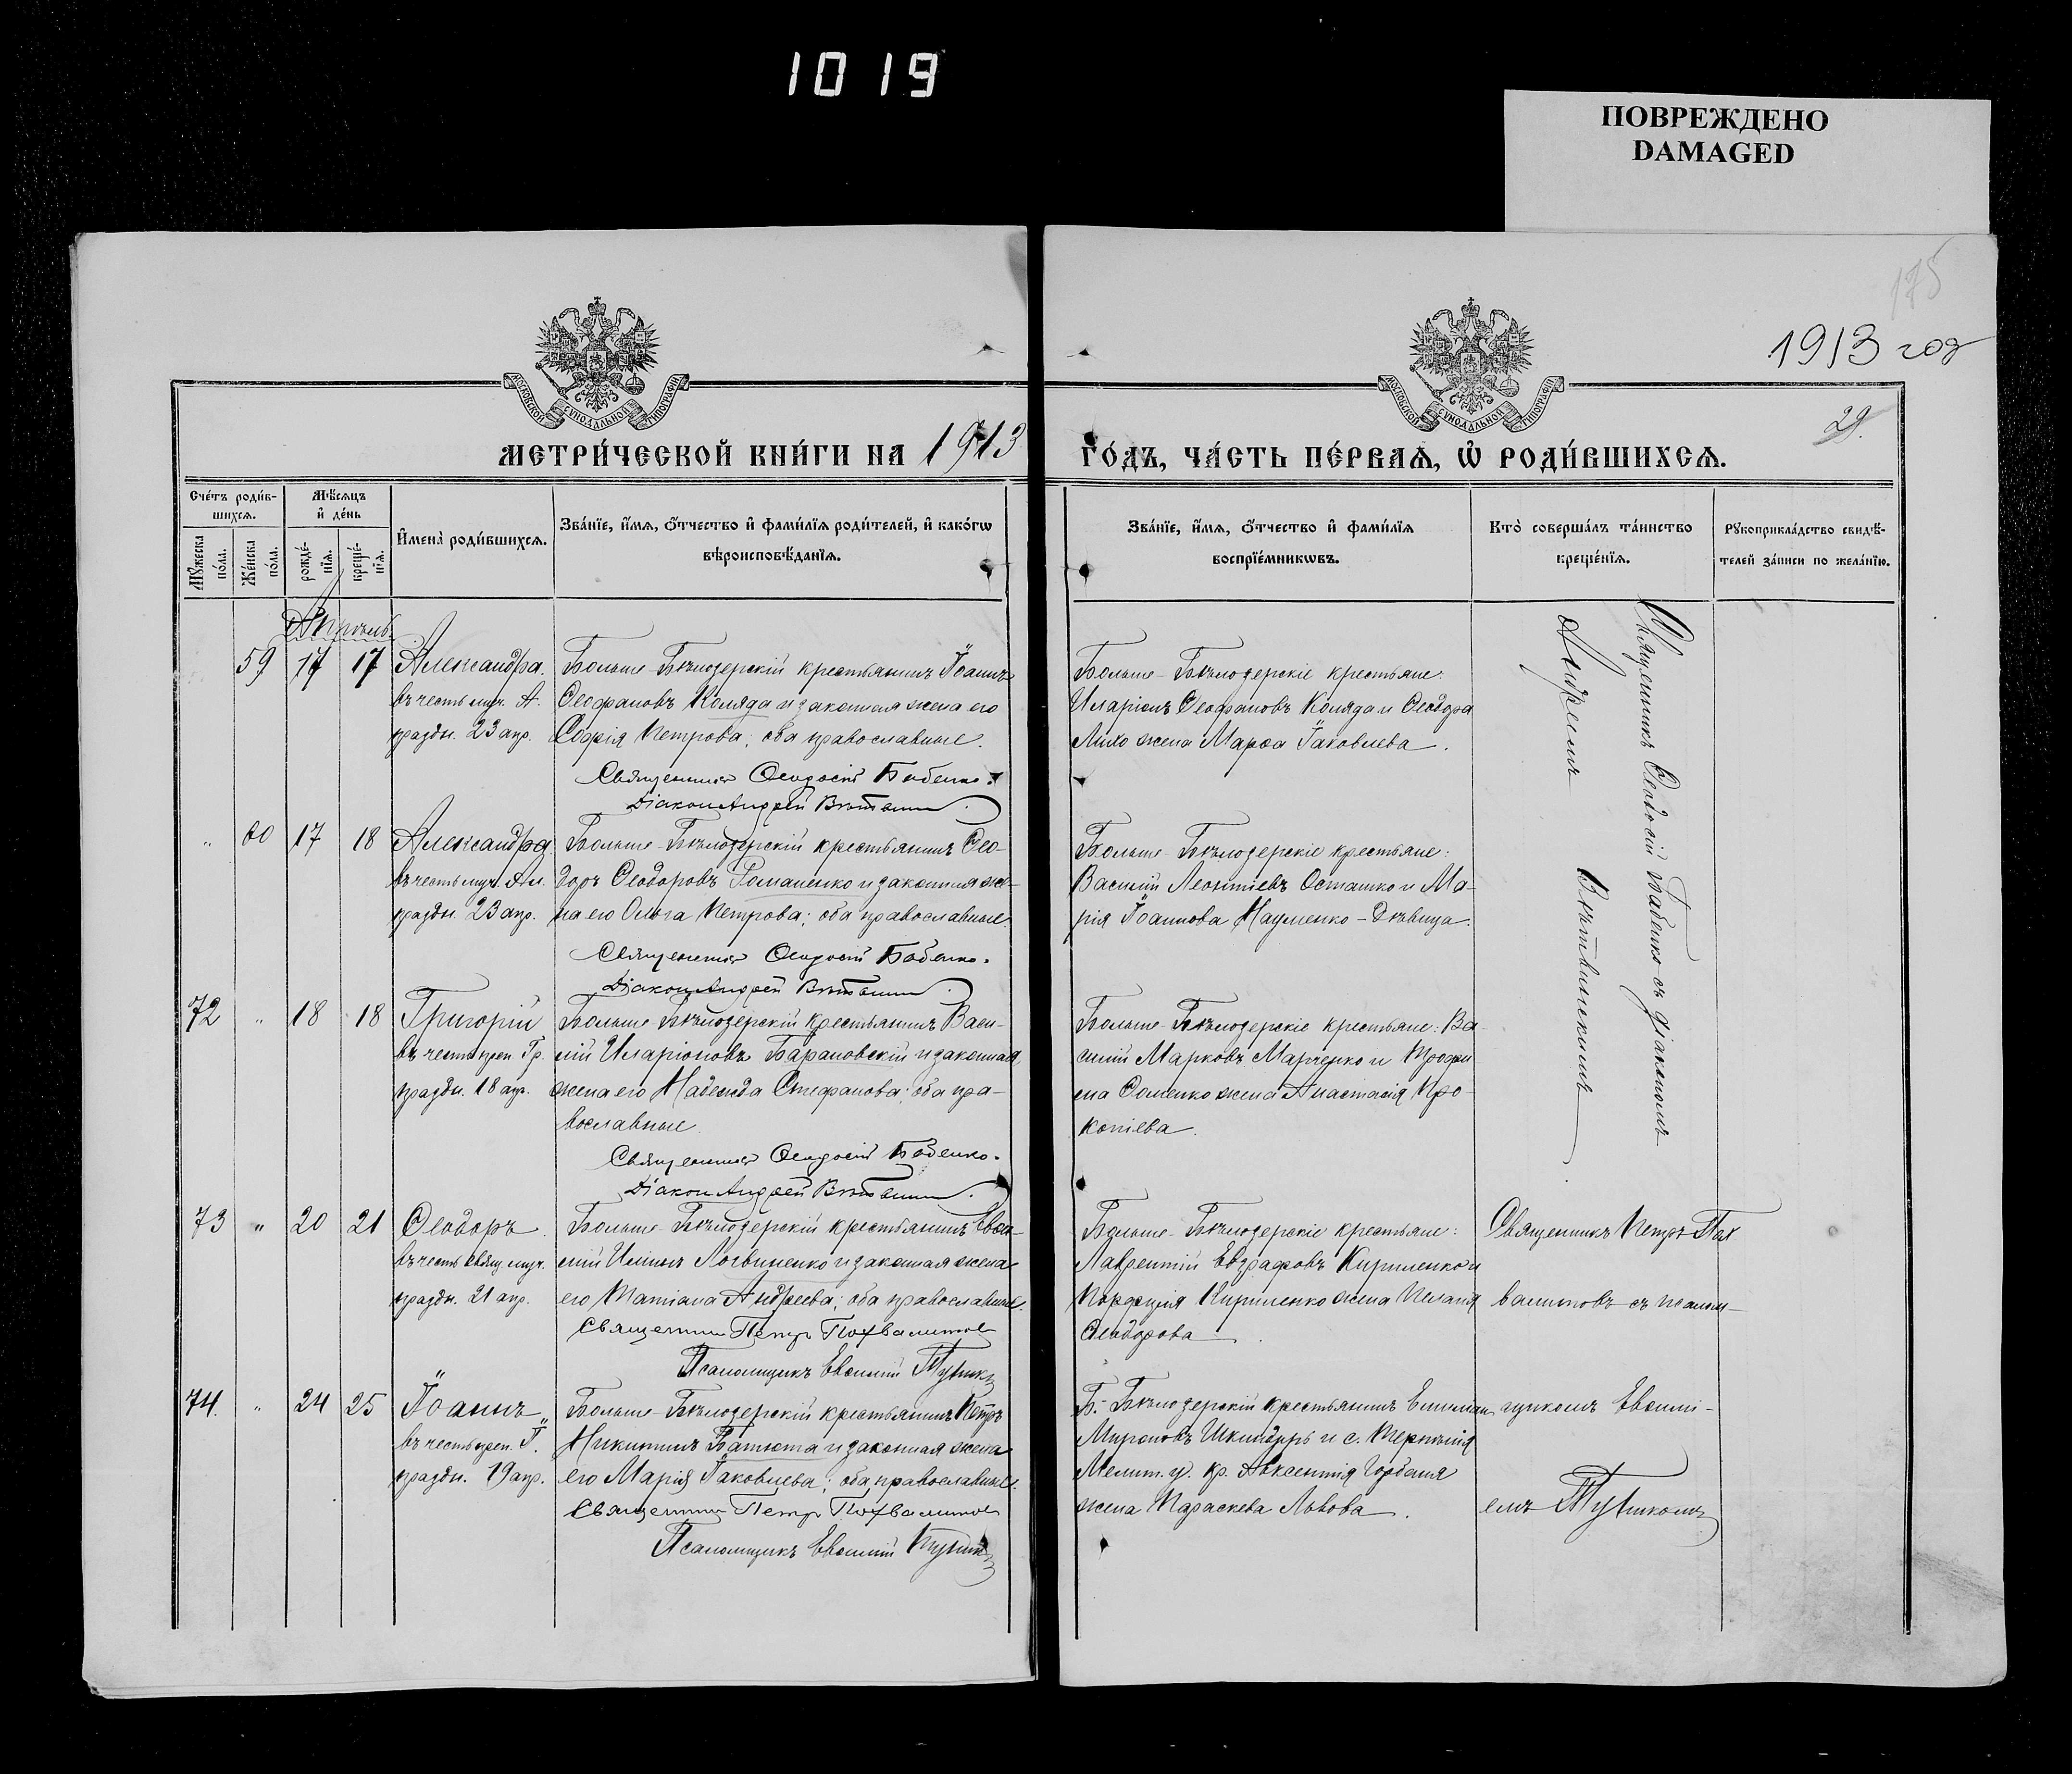 1019
ПОВРЕЖДЕНО
DAMAGED
175
1913 год
29.
МОСКОВСКОЙ СѴНОДАЛЬНОЙ ТИПОГРАФІИ
МОСКОВСКОЙ СѴНОДАЛЬНОЙ ТИПОГРАФІИ
МЕТРИ́ЧЕСКОЙ КНИ́ГИ НА 1913 ГО́ДЪ, ЧА́СТЬ ПЕ́РВАЯ, Ѡ҆ РОДИ́ВШИХСЯ.
Сче́тъ роди́в-
шихсѧ.
Мꙋ́жеска по́ла.
Же́нска по́ла.
Мѣ́сѧцъ
и҆ де́нь
рожде́-
нїѧ.
креще́-
нїѧ.
И҆мена̀ роди́вшихсѧ.
Зва́нїе, и҆́мѧ, ѻ҆́тчество и҆ фами́лїѧ роди́телей, и҆ како́гѡ
вѣроисповѣ́данїѧ.
Зва́нїе, и҆́мѧ, ѻ҆́тчество и҆ фами́лїѧ
воспрїе́мникѡвъ.
Кто̀ соверша́лъ та́инство
креще́нїѧ.
Рꙋкоприкла́дство свидѣ́-
телей за́писи по жела́нїю.
Апрѣль
59 17 17 Александра.
въ честь муч. А.
праздн. 23 апр.
Больше-Бѣлозерскій крестьянинъ Іоаннъ
Ѳеофановъ Коляда и законная жена его
Софія Петрова; оба православные.
Священникъ Ѳеодосій Бабенко.
Діаконъ Андрей
Больше-Бѣлозерскіе крестьяне:
Иларіонъ Ѳеофановъ Коляда и Ѳеодора
Лихо жена Марѳа Іаковлева.
Священникъ Ѳеодосій Бабенко съ діакономъ
Андреемъ
" 60 17 18 Александра
въ честь муч. Ал.
праздн. 23 апр.
Больше-Бѣлозерскій крестьянинъ Ѳео-
доръ Ѳеодоровъ Романенко и законная же-
на его Ольга Петрова; оба православные.
Священникъ Ѳеодосій Бабенко.
Діаконъ Андрей
Больше-Бѣлозерскіе крестьяне:
Василій Леонтіевъ Осташко и Ма-
рія Іоаннова Науменко-Дѣвица.
72 " 18 18 Григорій
въ честь преп. Гр.
праздн. 18 апр.
Больше-Бѣлозерскій крестьянинъ Васи-
лій Иларіоновъ Барановскій и законная
жена его Надежда Стефанова; оба пра-
вославные.
Священникъ Ѳеодосій Бабенко.
Діаконъ Андрей
Больше-Бѣлозерскіе крестьяне: Ва-
силій Марковъ Марченко и
жена Анастасія Про-
копіева.
73 " 20 21 Ѳеодоръ
въ честь свящ. муч.
праздн. 21 апр.
Больше-Бѣлозерскій крестьянинъ Евѳи-
мій Ильинъ Логвиненко и законная жена
его Татіана Андреева; оба православные.
Священникъ Петръ Похвалитовъ
Псаломщикъ Евѳимій
Больше-Бѣлозерскіе крестьяне:
Лаврентій Евграфовъ Кириленко и
Кириленко жена Пелагія
Ѳеодорова.
Священникъ Петръ Пох
валитовъ съ псалом-
74. " 24 25 Іоаннъ
въ честь преп. І.
праздн. 19 апр.
Больше-Бѣлозерскій крестьянинъ Петръ
Никитинъ Батюта и законная жена
его Марія Іаковлева; оба православные.
Священникъ Петръ Похвалитовъ
Псаломщикъ Евѳимій
Б.-Бѣлозерскій крестьянинъ Емиліанъ
Мироновъ и с. Терпѣнія
Мелит. у. кр. Авксентія Горбаня
жена Параскева Львова.
щикомъ Евѳимі-
емъ